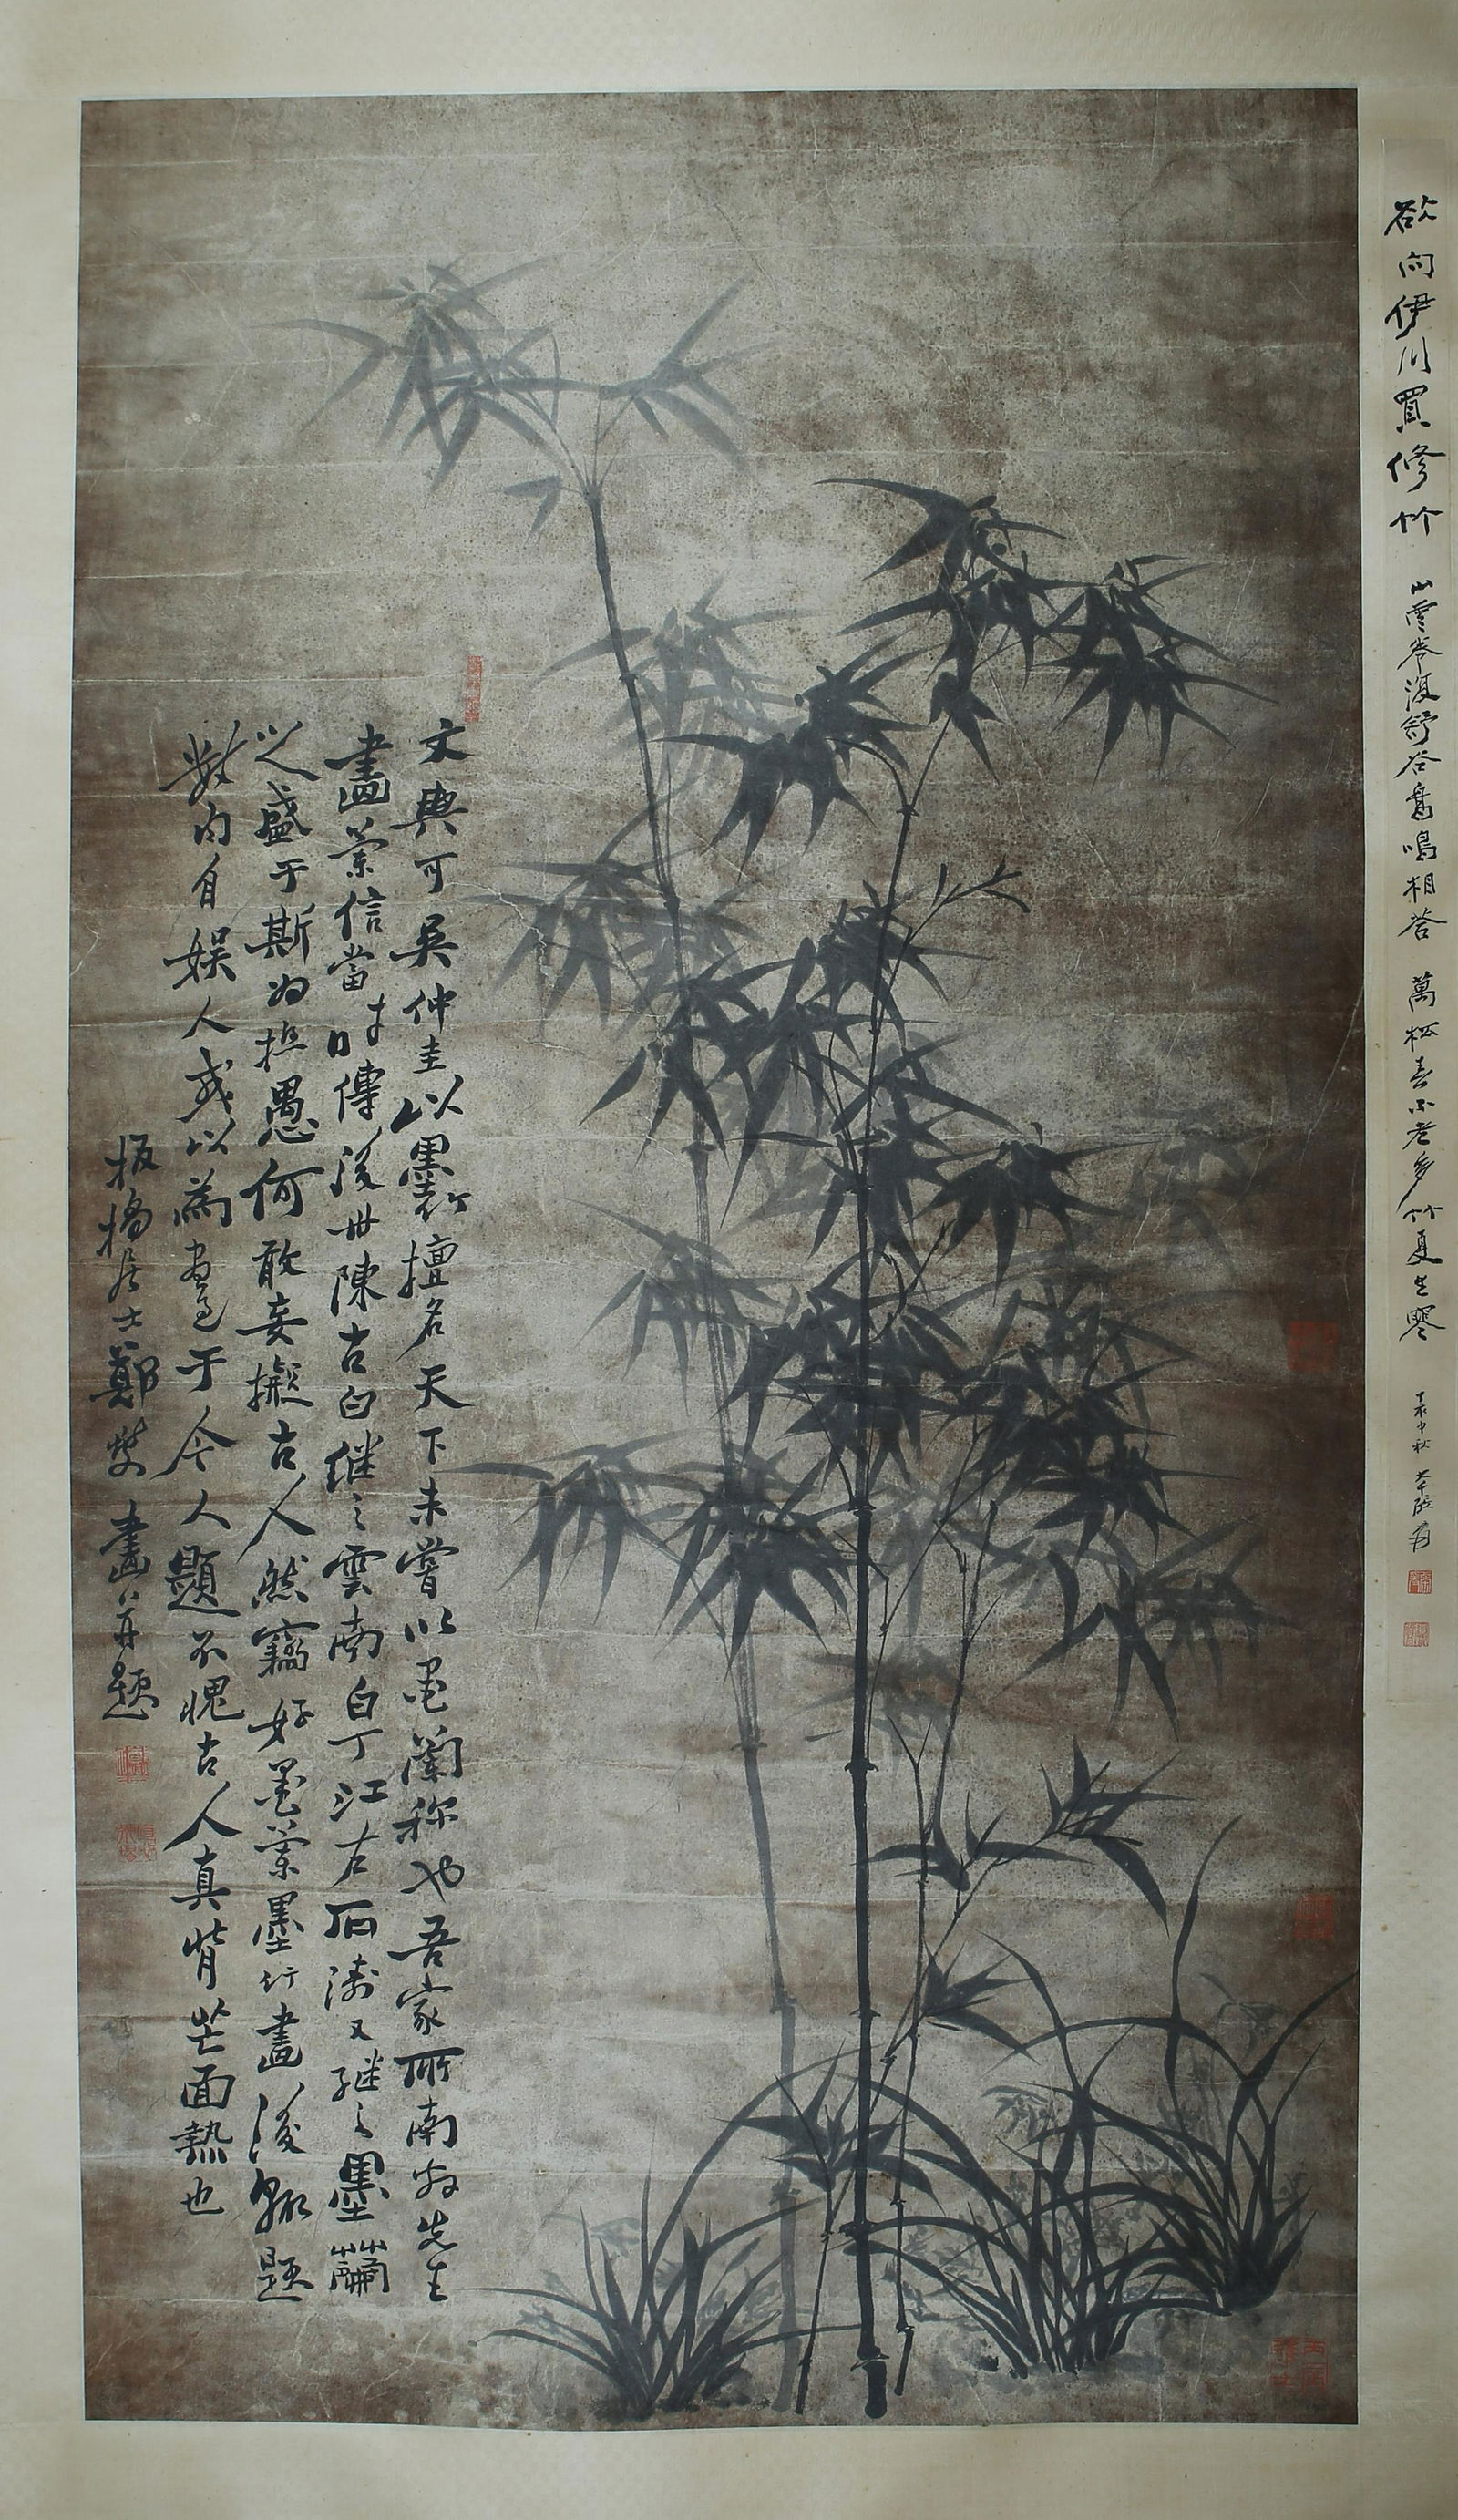 欲向伊川買修竹
山雲卷復舒谷鳥鳴相答 萬松春不老多竹夏生寒
中秋 大千 爰
文與可吳仲圭以墨竹擅名天下未嘗以墨蘭称也吾家所南先生
畫蘭信當时傳後世陳古白继之雲南白丁江右石濤又继之墨蘭
之盛于斯为極愚何敢妄擬古人然竊好墨蘭墨竹畫後輒題
數句自娱人或以為畫意于今人題不愧古人真背芒面熱也
板橋居士鄭燮畫并题